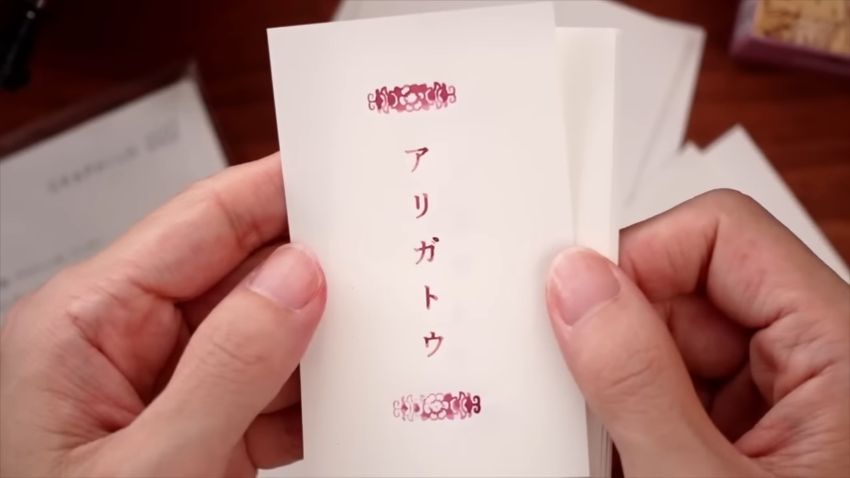 アリガトウ